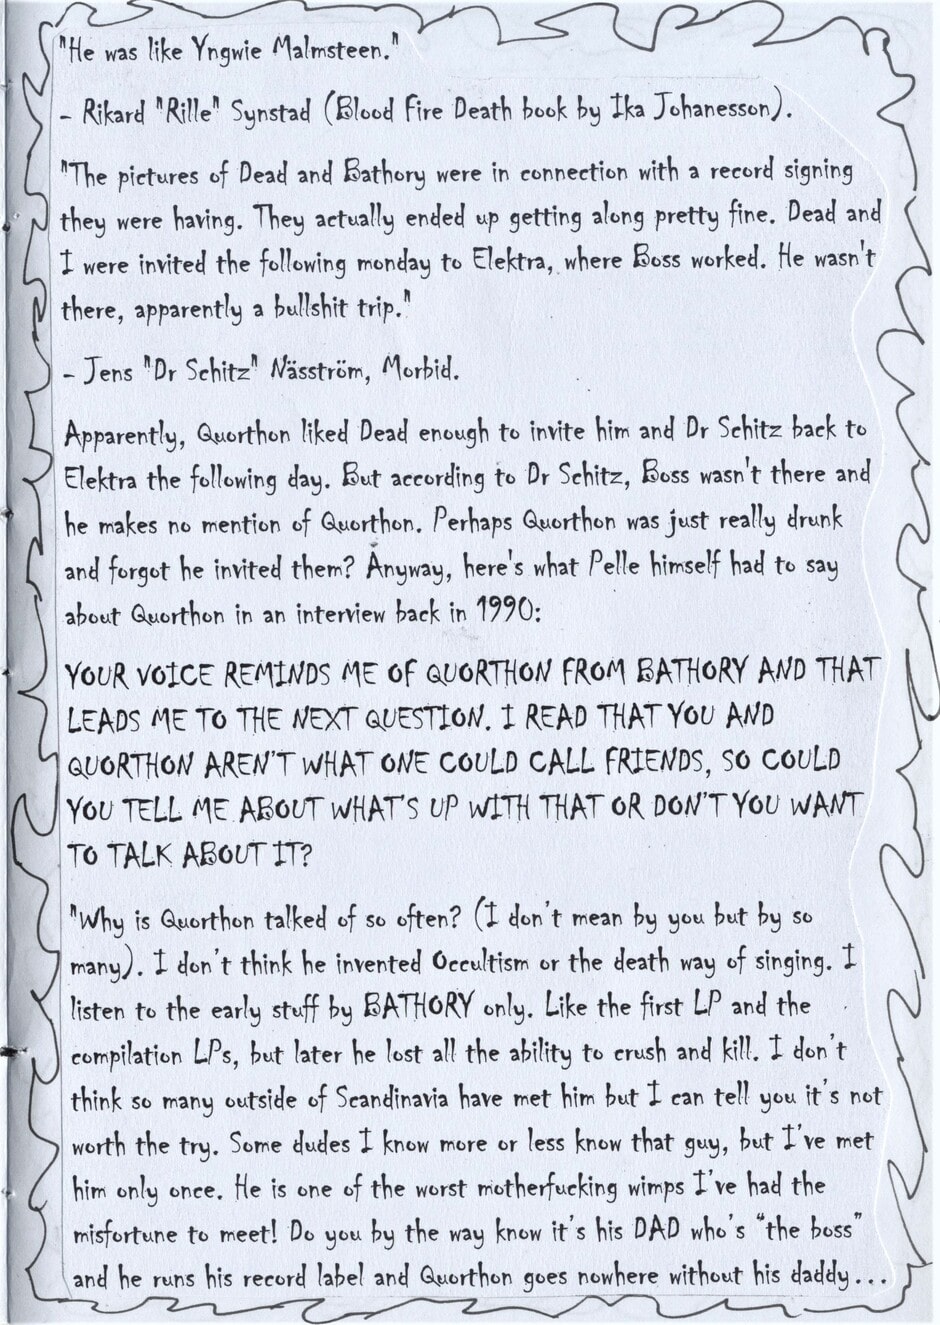 "He was like Yngwie Malmsteen."
- Rikard "Rille" Synstad (Blood Fire Death book by Ika Johanesson).
"The pictures of Dead and Bathory were in connection with a record signing
they were having. They actually ended up getting along pretty fine. Dead and
I were invited the following monday to Elektra, where Boss worked. He wasn't
there, apparently a bullshit trip."
- Jens "Dr Schitz" Näsström, Morbid.
Apparently, Quorthon liked Dead enough to invite him and Dr Schitz back to
Elektra the following day. But according to Dr Schitz, Boss wasn't there and
he makes no mention of Quorthon. Perhaps Quorthon was just really drunk
and forgot he invited them? Anyway, here's what Pelle himself had to say
about Quorthon in an interview back in 1990:
YOUR VOICE REMINDS ME OF QUORTHON FROM BATHORY AND THAT
LEADS ME TO THE NEXT QUESTION. I READ THAT YOU AND
QUORTHON AREN'T WHAT ONE COULD CALL FRIENDS, SO COULD
YOU TELL ME ABOUT WHAT'S UP WITH THAT OR DON'T YOU WANT
TO TALK ABOUT IT?
"Why is Quorthon talked of so often? (I don't mean by you but by so
many). I don't think he invented Occultism or the death way of singing. I
listen to the early stuff by BATHORY only. Like the first LP and the
compilation LPs, but later he lost all the ability to crush and kill. I don't
think so many outside of Scandinavia have met him but I can tell you it's not
worth the try. Some dudes I know more or less know that guy, but I've met
him only once. He is one of the worst motherfucking wimps I've had the
misfortune to meet! Do you by the way know it's his DAD who's “the boss”
and he runs his record label and Quorthon goes nowhere without his daddy...